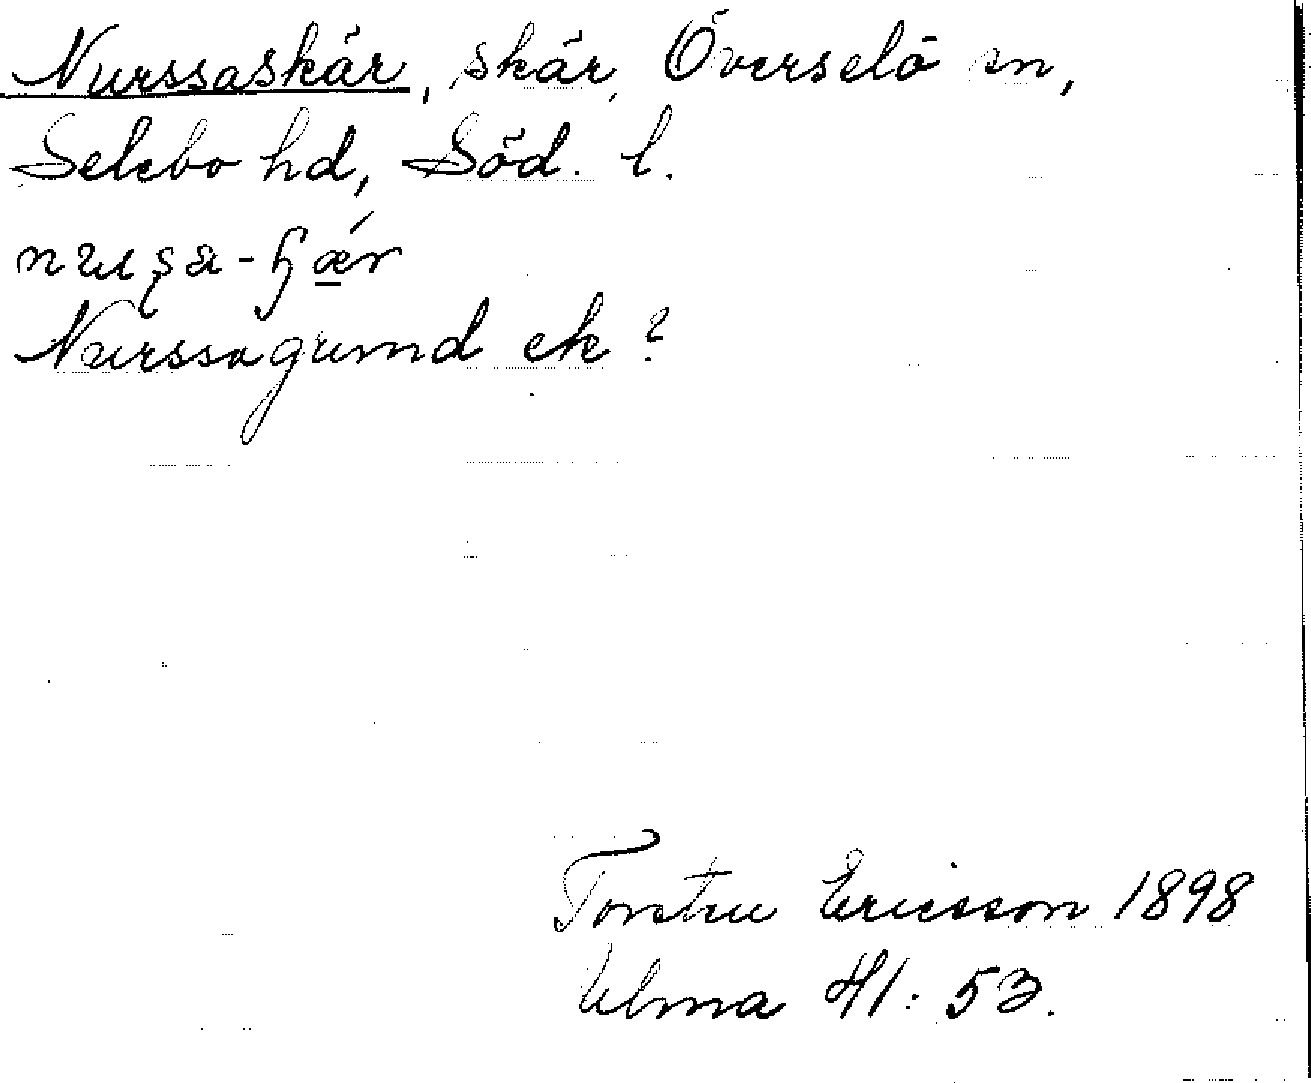 Nurssaskär, skär, Överselö sn,
Selebo hd, Söd. l.
Nurssagumd ek?
Torsten Ericsson 1898
Ulma 41: 53.